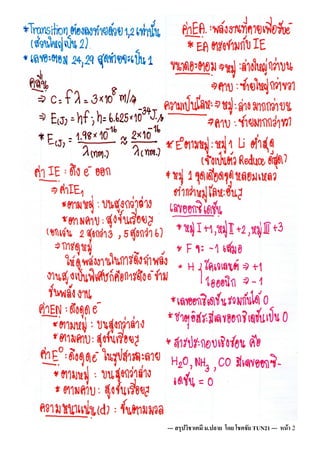 *Transition ต้องลงท้ายด้วย 1,2 เท่านั้น
(ส่วนใหญ่เป็น 2)
* เลขอะตอม 24,29 สุดท้ายจะเป็น 1
คลื่น
⇒ C = fλ = 3×10⁸ m/s
⇒ E(J) = hf ; h = 6.625×10⁻³⁴ J.s
* E(J) = 1.98×10⁻¹⁶/λ(nm.) ≈ 2×10⁻¹⁶/λ(nm.)
ค่า IE : ดึง e⁻ ออก
⇒ ค่า IE₁
*ตามหมู่ : บนสูงกว่าล่าง
*ตามคาบ : สูงขึ้นเรื่อยๆ
(ยกเว้น 2 สูงกว่า 3 , 5 สูงกว่า 6)
⇒ การดูหมู่
ให้ดูพลังงานในการดึงลำดับ
งานสูงเป็นพิเศษคือการดึง e⁻ ข้าม
ชั้นพลังงาน
ค่า EN : ดึงดูด e⁻
*ตามหมู่ : บนสูงกว่าล่าง
*ตามคาบ : สูงขึ้นเรื่อยๆ
ค่า E° : ดึงดูด e⁻ ในรูปสารละลาย
* ตามหมู่ : บนสูงกว่าล่าง
* ตามคาบ : สูงขึ้นเรื่อยๆ
ความหนาแน่น (d) : ขึ้นตามมวล
ค่า EA : พลังงานที่คายเพื่อรับ e⁻
* EA ตรงข้ามกับ IE
ขนาดอะตอม ⇒ หมู่ : ล่างใหญ่กว่าบน
⇒ คาบ : ซ้ายใหญ่กว่าขวา
ความเป็นโลหะ : ⇒ หมู่ : ล่างมากกว่าบน
⇒ คาบ : ซ้ายมากกว่าขวา
* E° ตามหมู่ : หมู่ 1 Li ต่ำสุด
(จึงเป็นตัว Reduce ดีสุด)
* หมู่ 1 จุดเดือดจุดหลอมเหลว
ต่ำกว่าหมู่โลหะอื่นๆ
เลขออกซิเดชัน
* หมู่ I +1, หมู่ II +2, หมู่ III +3
* F จะ -1 เสมอ
* H โคเวเลนต์ ⇒ +1
ไอออนิก ⇒ -1
*เลขออกซิเดชันรวมกันได้ 0
*ธาตุอิสระมีเลขออกซิเดชันเป็น 0
* สารประกอบเชิงซ้อน คือ
H₂O, NH₃, CO มีเลขออกซิ-
เดชัน = 0
--- สรุปวิชาเคมี ม.ปลาย โดย โชคชัย TUN21 --- หน้า 2